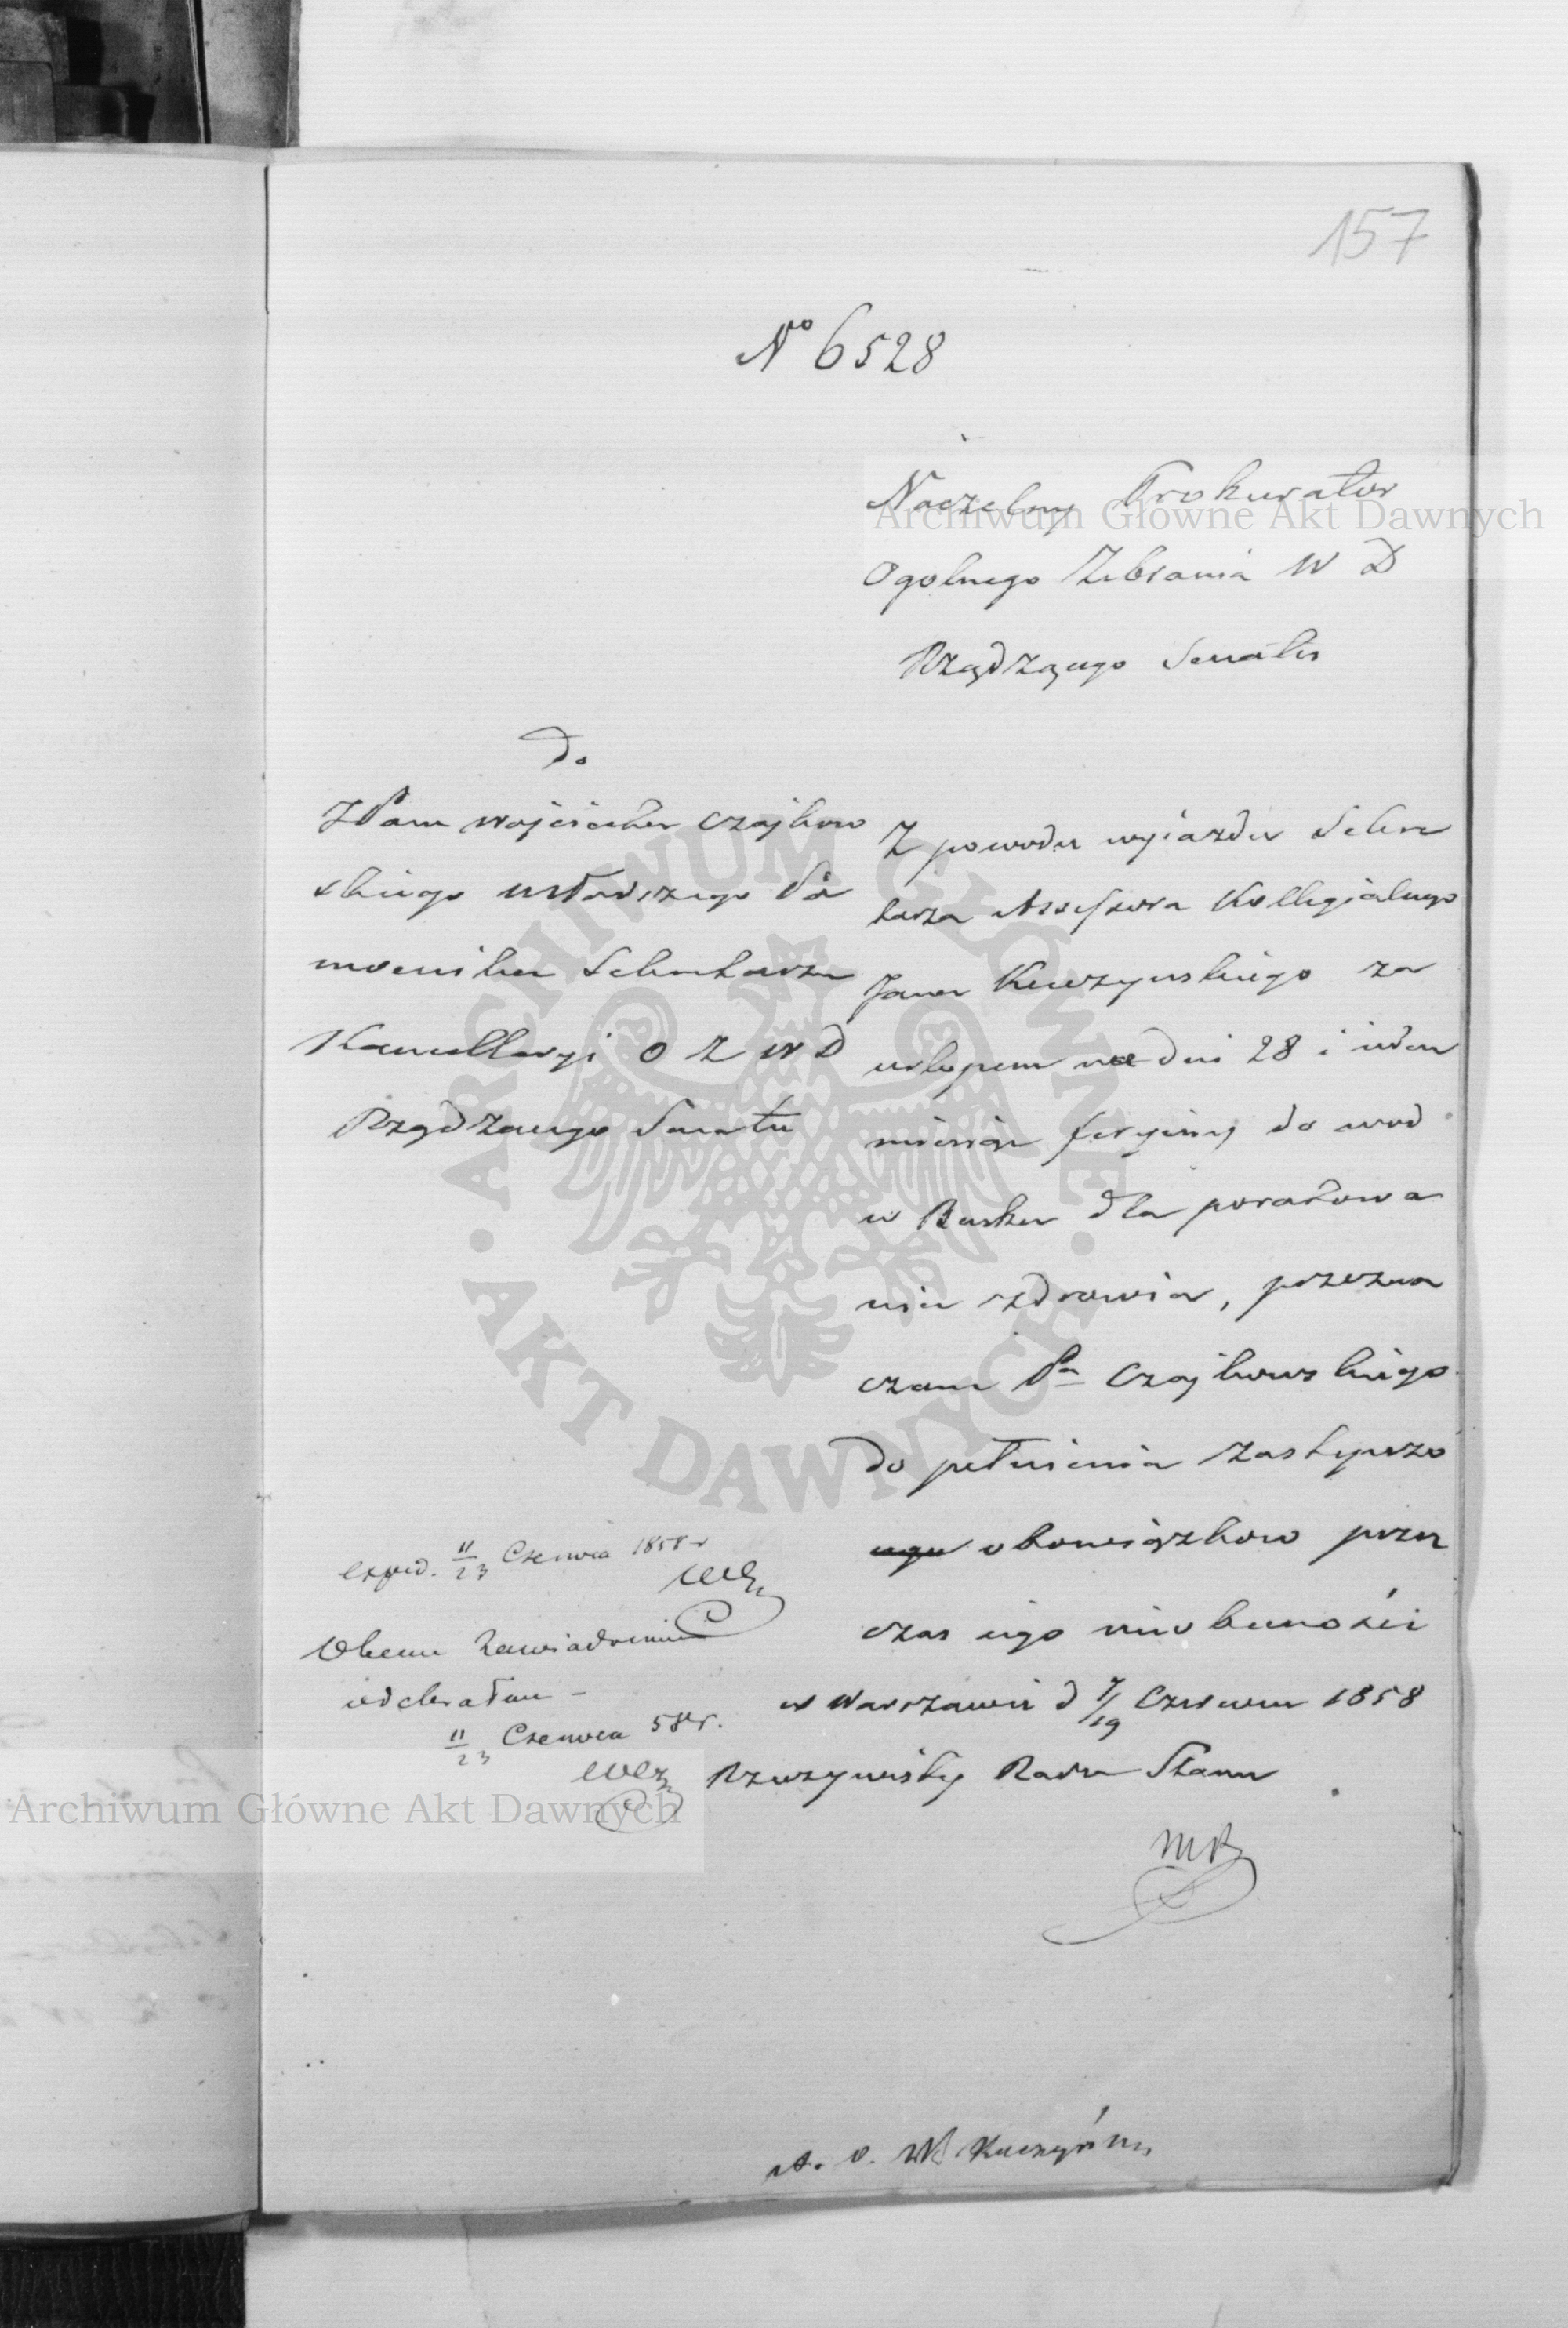 157
No 6528
Naczelny Prokurator
Ogolnego Zebrania W D
Rządzącego Senatu
Do
JPana Wojciecha Czajkow
skiego Młodszego Po
mocnika Sekretarza
Kancellaryi O Z W D
Rządzącego Senatu
Z powodu wyjazdu Sekre
tarza Assessora Kollegialnego
Jana Kuczynskiego za
urlopem na dni 28 i
miesiąc feryjny do wod
w Busku dla poratowa
nia zdrowia, przezna
czam Pa Czajkowskiego
do pełnienia zastępczo
obowiązkow przez
czas iego nieobecności
w Warszawie d 7/19 Czerwca 1858
Rzeczywisty Radca Stanu
exped. 11/23 Czerwca 1858 r
Obecne Zawiadomienie
odebrałem –
11/23 Czerwca 58 r.
Kuczyński
Archiwum Główne Akt Dawnych
Archiwum Główne Akt Dawnych
ARCHIWUM GŁÓWNE
AKT DAWNYCH